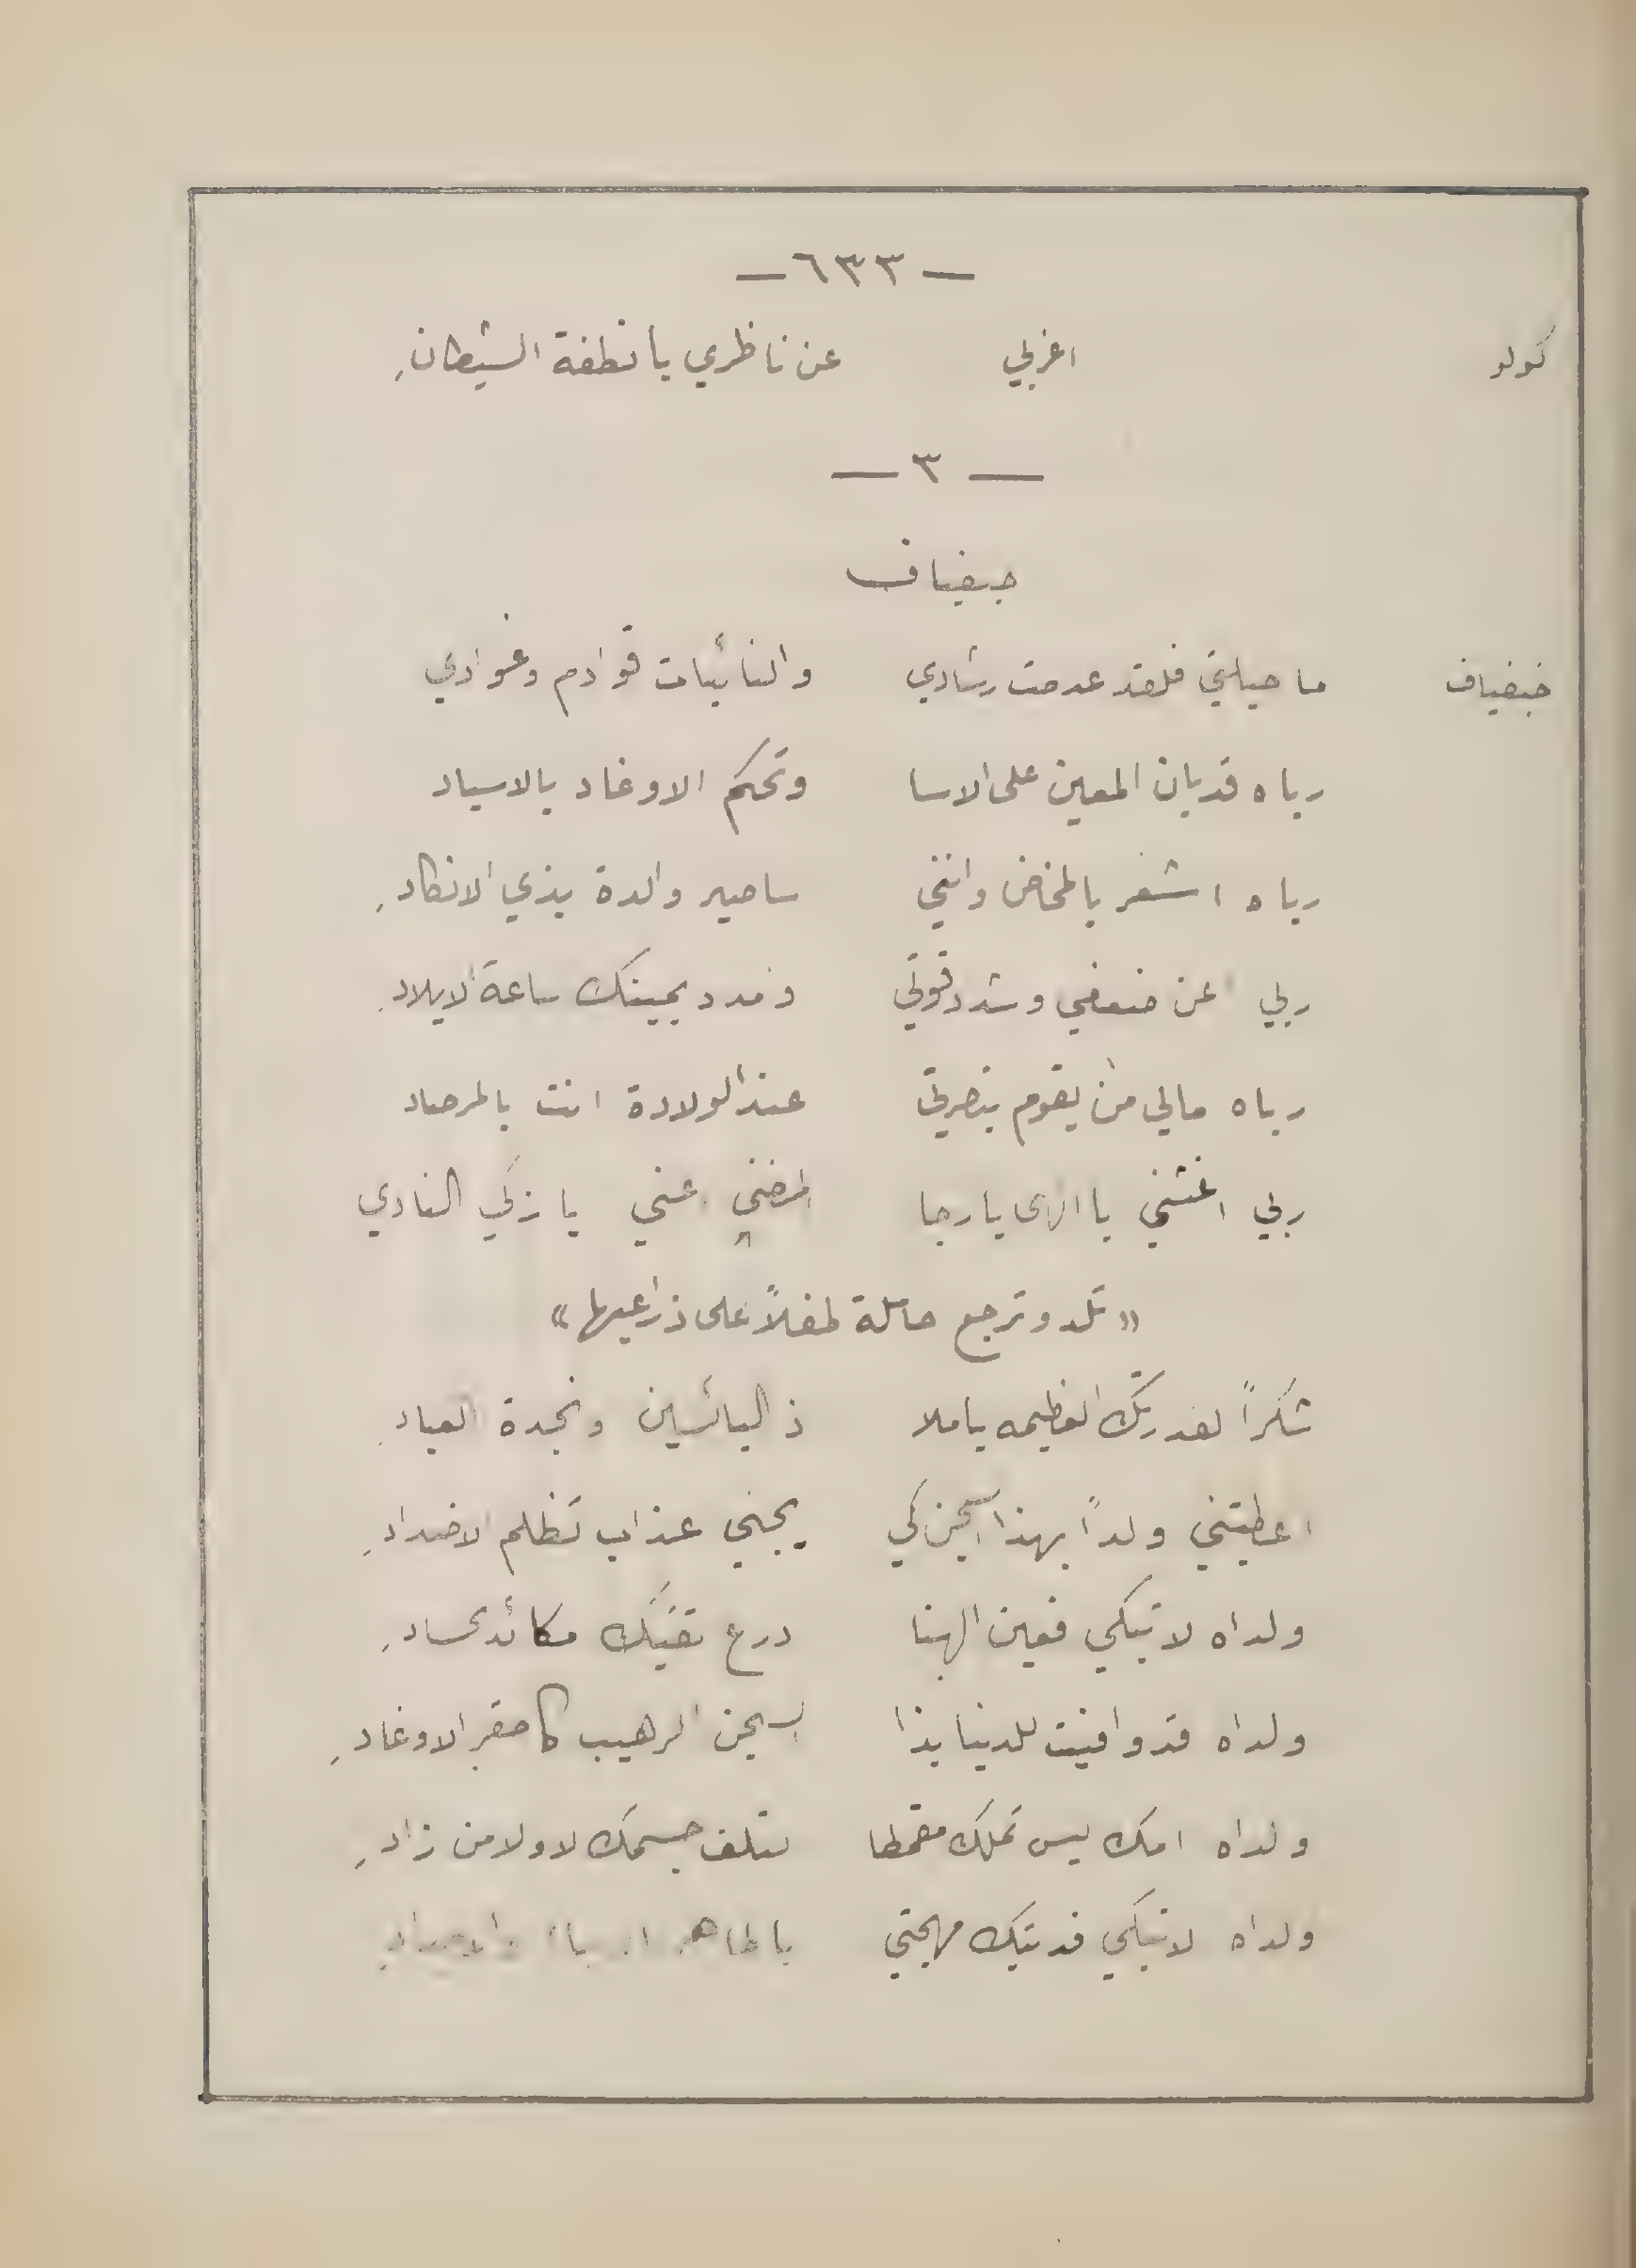 — ٦٣٣ —
كولو اغربي عن ناظري يا نطفة الشيطانِ
— ٣ —
جيفياف
جنفياف ما حيلتي فلقد عدمت رشادي والنائبات قوادم وغوادي
رباه قد بان المعين على الاسا وتحكم الاوغاد بالاسياد
رباه اشعر بالمخاض وانني ساصير والدة بذي الانكادِ
ربي اعن ضعفي وشدد قوتي وامدد يمينك ساعة الايلادِ
رباه مالي من يقوم بنصرتي عند الولادة انت بالمرصاد
ربي اغثني يا الهى يا رجا المضني اعني يا زكي النادي
«تلد وترجع حاملة طفلاً على ذراعيها»
شكراً لقدرتك العظيمه يا ملا ذ البائسين ونجدة العبادِ
اعطيتني ولداً بهذا السجن كي يجني عذاب تظلم الاضدادِ
ولداه لا تبكي فعين الهنا درع تقيك مكائد الحسادِ
ولداه قد وافيت للدنيا بذا السجن الرهيب كاصقر الاوغادِ
ولداه امك ليس تملك مقمطا لتلف جسمك لا ولا من زادِ
ولداه لا تبكي فديتك مهجتي يا طاهر